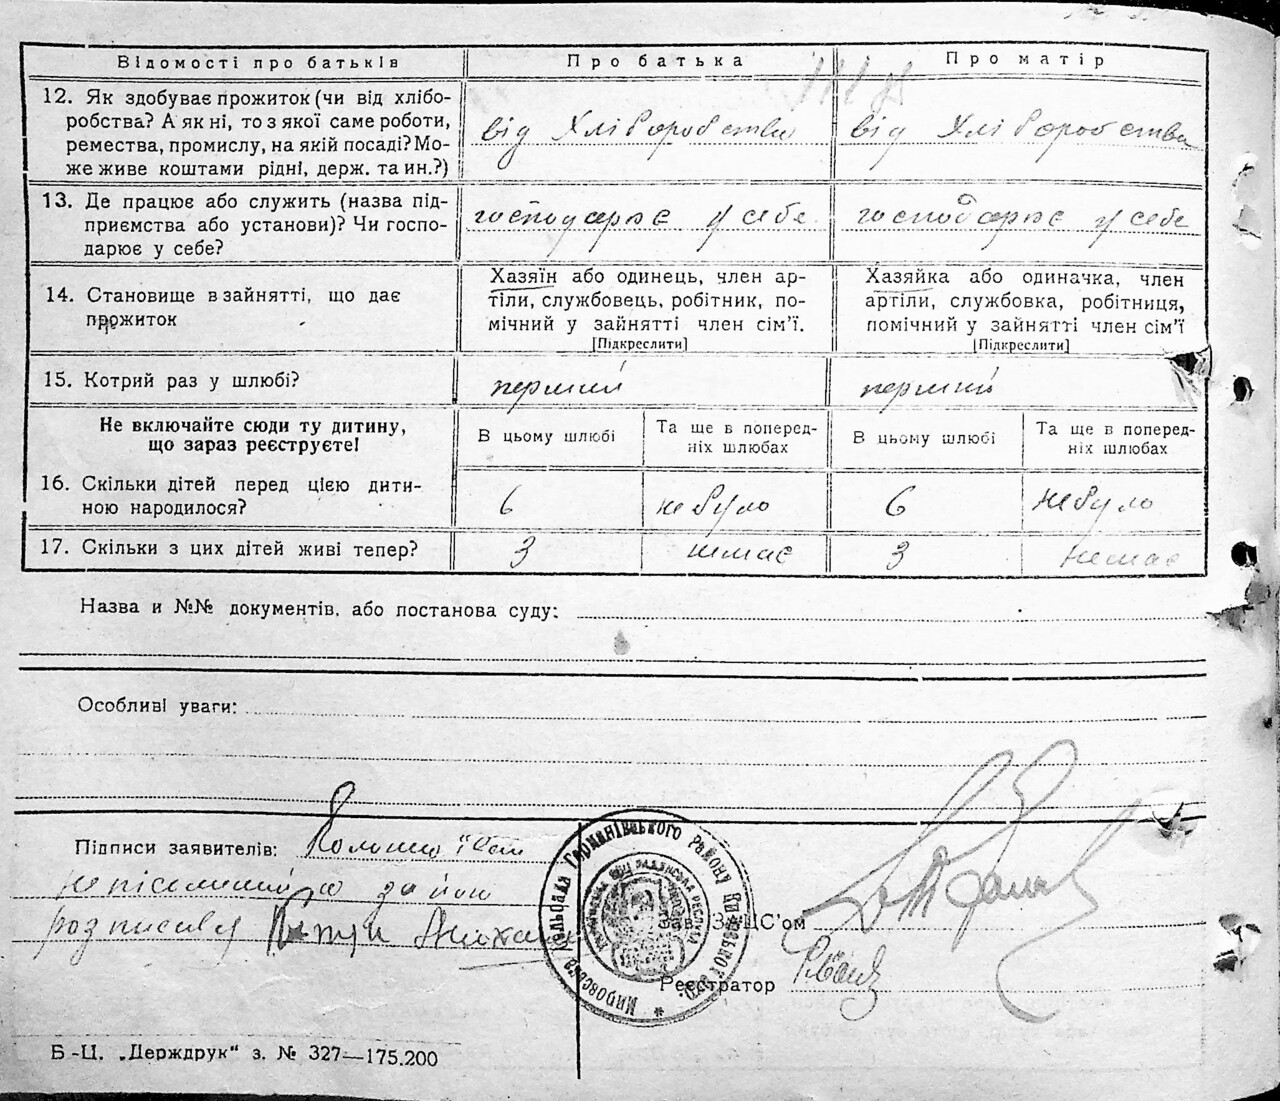 Відомості про батьків
Про батька
Про матір
12. Як здобуває прожиток (чи від хлібо-
робства? А як ні, то з якої саме роботи,
ремества, промислу, на якій посаді? Мо-
же живе коштами рідні, держ. та ин.?)
від Хліборобства
від Хліборобства
13. Де працює або служить (назва під-
приємства або установи)? Чи госпо-
дарює у себе?
господарює у себе
господарює у себе
14. Становище в зайнятті, що дає
прожиток
Хазяїн або одинець, член ар-
тіли, службовець, робітник, по-
мічний у зайнятті член сім'ї.
[Підкреслити]
Хазяйка або одиначка, член
артіли, службовка, робітниця,
помічний у зайнятті член сім'ї
[Підкреслити]
15. Котрий раз у шлюбі?
перший
перший
Не включайте сюди ту дитину,
що зараз реєструєте!
В цьому шлюбі
Та ще в поперед-
ніх шлюбах
В цьому шлюбі
Та ще в поперед-
ніх шлюбах
16. Скільки дітей перед цією дити-
ною народилося?
6
не було
6
не було
17. Скільки з цих дітей живі тепер?
3
немає
3
немає
Назва и №№ документів, або постанова суду:
Особливі уваги:
Підписи заявителів:
розписався
Зав. ЗАЦС'ом
Реєстратор
Мировська сельрада Германівського Району Київської
Б-Ц. „Держдрук" з. № 327—175.200